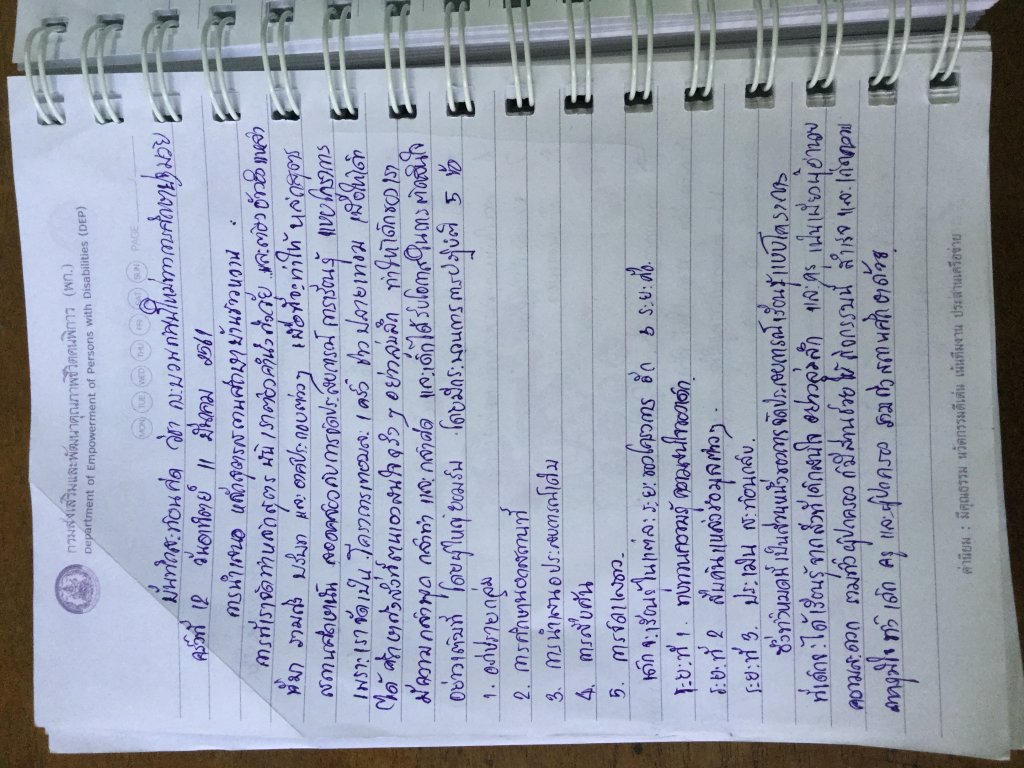 กรมส่งเสริมและพัฒนาคุณภาพชีวิตคนพิการ (พก.)
Department of Empowerment of Persons with Disabilities (DEP)
MON TUE WED THU FR SAT SUN PAGE
บันทึกสะท้อนคิด วิชา กระบวนทัศน์ใหม่ทางการศึกษาปฐมวัย
ครั้งที่ 12 วันอาทิตย์ 11 มีนาคม 2561
การนำเสนอ หลักสูตรสถานศึกษา
การที่เราจัดทำหลักสูตร นั้น เราต้องคำนึงถึงวัย และ
สังคม รวมถึง บริบท และ องค์ประกอบต่างๆ เพื่อที่จะทำให้ หลักสูตร
สถานศึกษานั้น สอดคล้องกับ การจัดประสบการณ์ การเรียนรู้ แบบโครงการ
เพราะเราจัดเป็น โครงการเทอมละ 1 ครั้ง ช่วงปลายเทอม เพื่อให้เด็ก
ได้ ศึกษาถึงสิ่งที่ตนเองสนใจจริงๆ อย่างลุ่มลึก ทำให้เด็กของเรา
มีความกล้าพูด กล้าทำ และ กล้าคิด และเด็กได้รับโอกาสในการตัดสินใจ
อย่างเต็มที่ โดยผู้ใหญ่ยอมรับ โดยมีกระบวนการปฏิบัติ 5 ข้อ
1. อภิปรายกลุ่ม
2. การศึกษานอกสถานที่
3. การนำเสนอประสบการณ์เดิม
4. การสืบค้น
5. การจัดแสดง
เด็กจะเรียนรู้ในแต่ละระยะของโครงการ อีก 3 ระยะ คือ
ระยะที่ 1. ทบทวนความรู้ ความสนใจของเด็ก
ระยะที่ 2 สืบค้นแหล่งข้อมูลต่างๆ
ระยะที่ 3. ประเมิน สะท้อนกลับ
ซึ่งทั้งหมดนี้ เป็นส่วนหนึ่งของการจัดประสบการณ์เรียนรู้แบบโครงการ
ที่เด็กจะได้เรียนรู้จากสิ่งที่เด็กสนใจ อย่างลุ่มลึก และครู เป็นเพียงผู้อำนวย
ความสะดวก รวมทั้งผู้ปกครอง ก็มีส่วนช่วยให้ กิจกรรมนี้ สำเร็จ และเกิดความ
ภาคภูมิใจ ทั้ง เด็ก ครู และผู้ปกครอง รวมถึงสถานศึกษาด้วย
ค่านิยม : มีคุณธรรม นวัตกรรมดีเด่น เน้นทีมงาน ประสานเครือข่าย